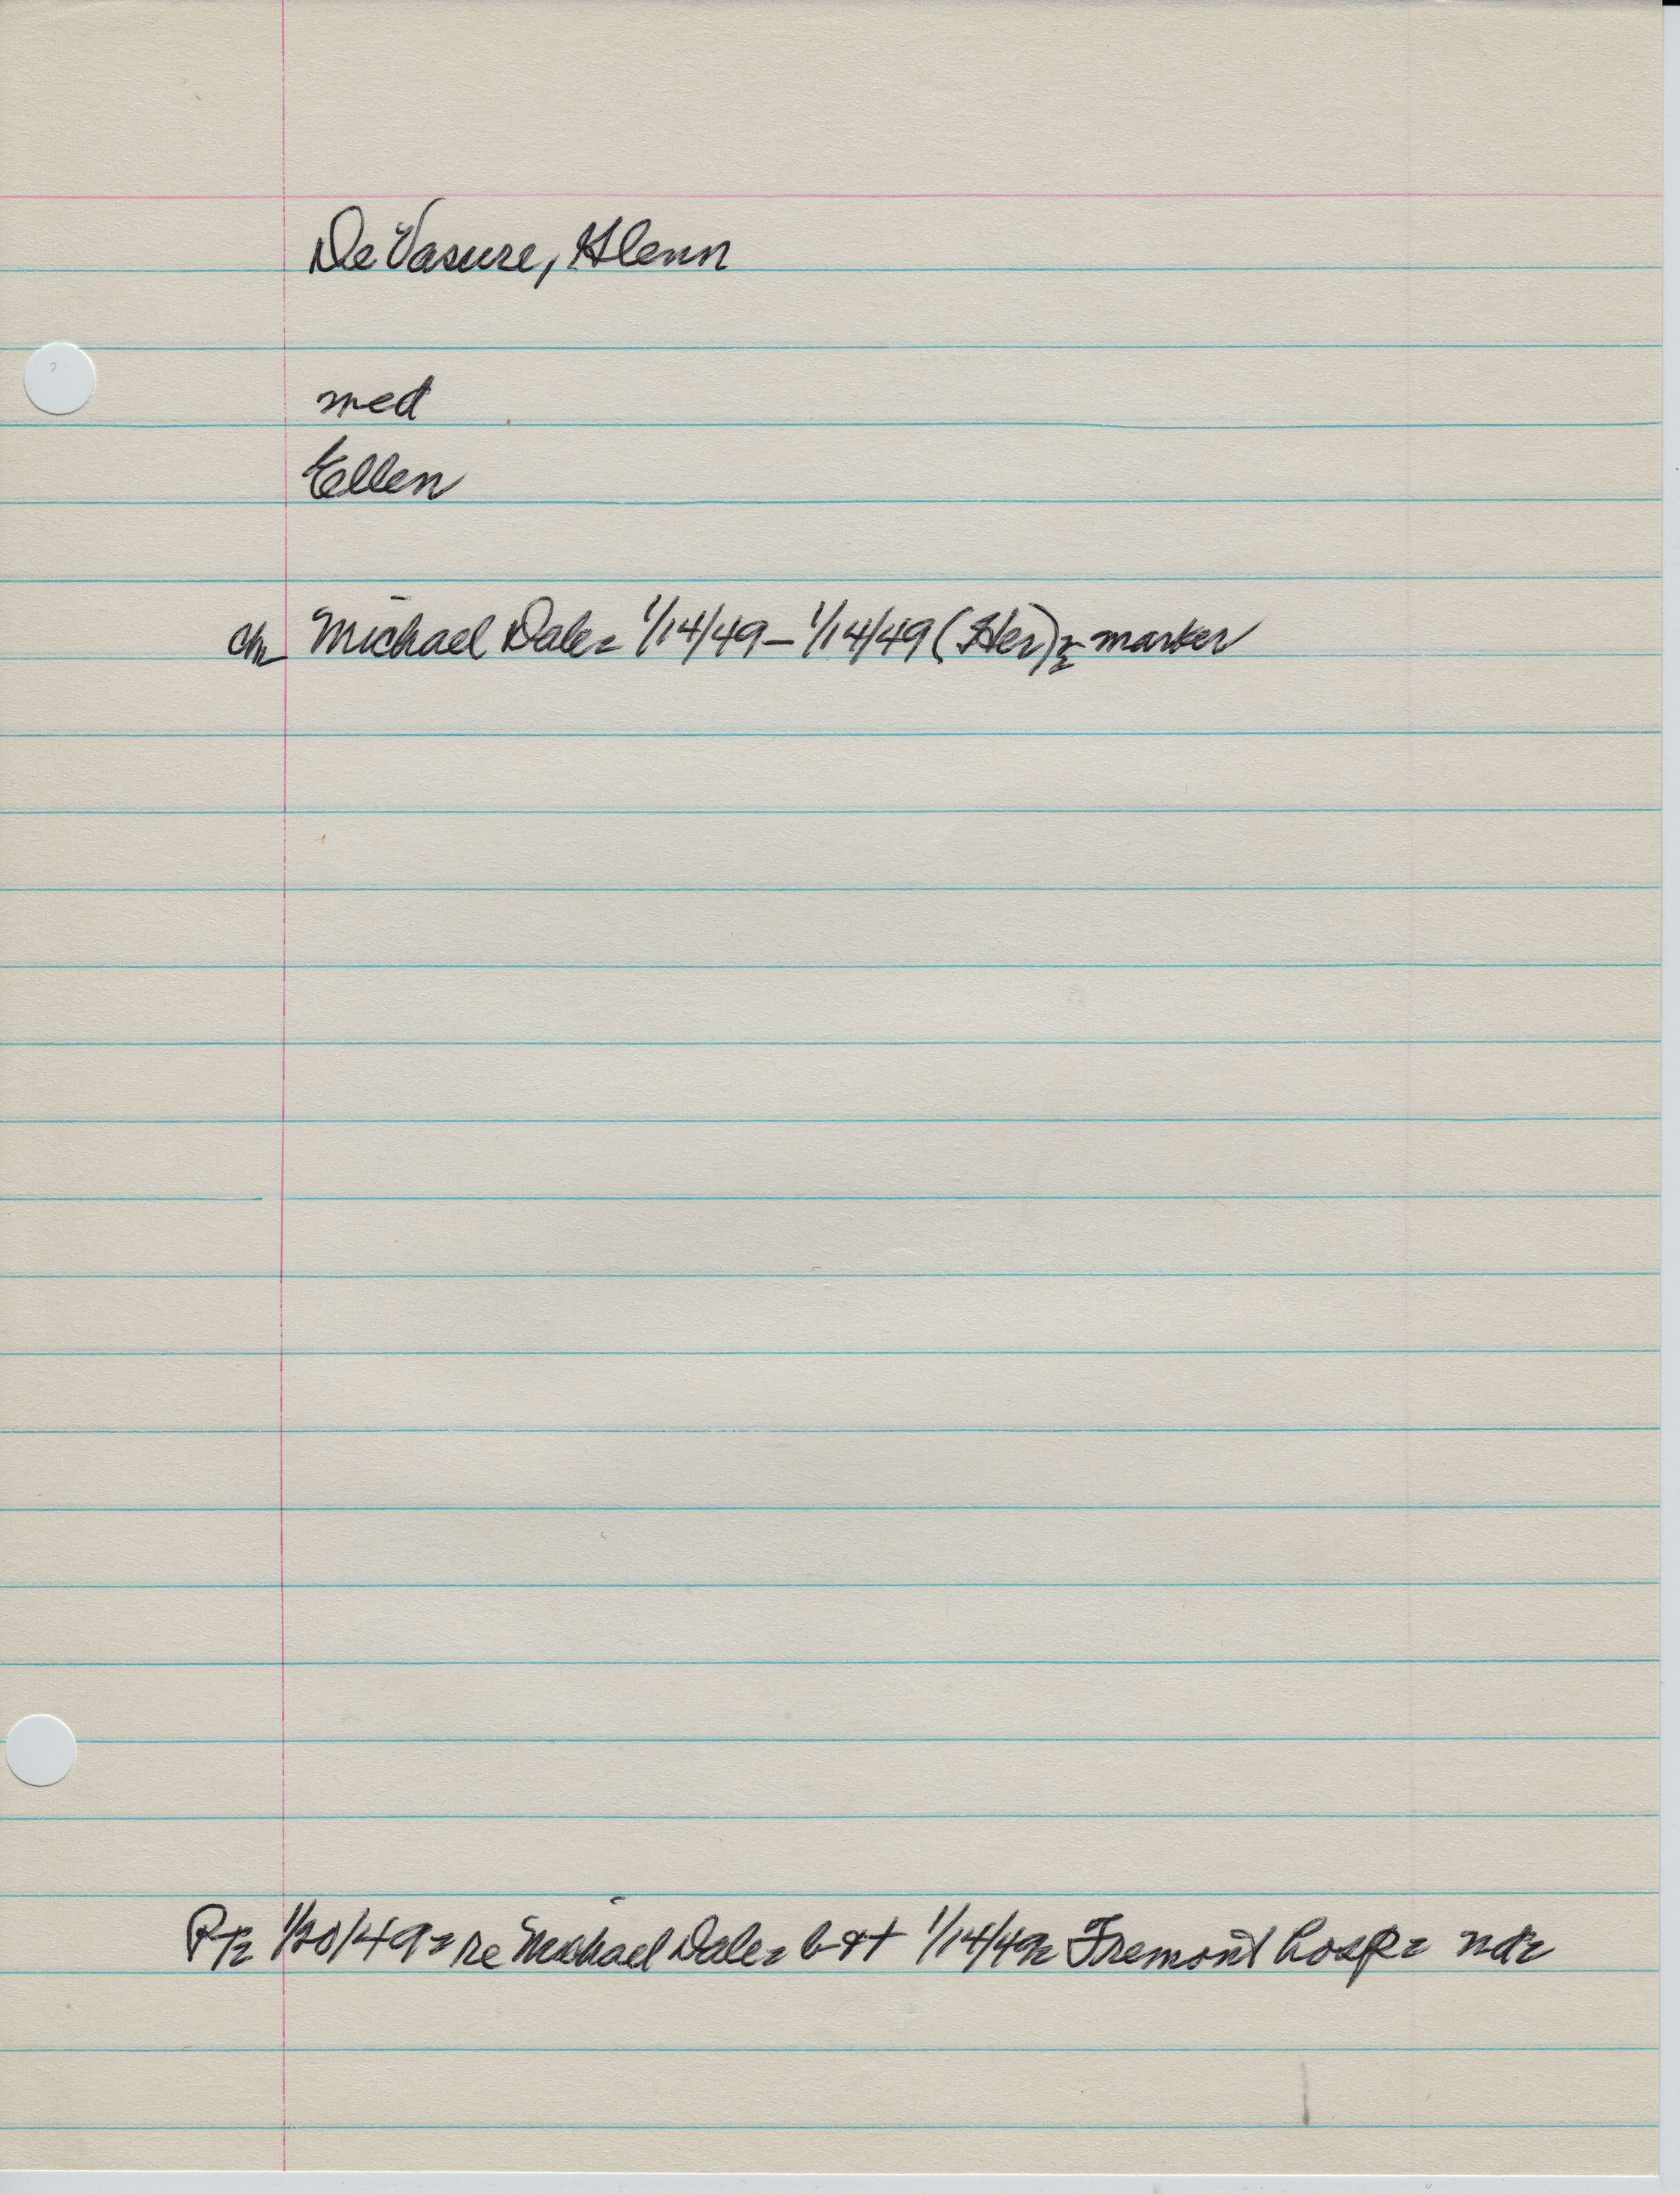 DeVasure, Glenn
med
Ellen
ch Michael Dale = 1/14/49 - 1/14/49 (Her) = marker
1/20/49 = re Michael Dale = b + 1/14/49 = Fremont hosp =